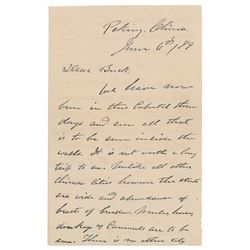 Peking, China
June 6th, 89
Dear Buck.
We have now
been in this Capital three
days and seen all that
is to be seen inside the
walls. It is not worth a long
trip to see. Unlike all other
Chinese Cities however the streets
are wide and abundance of
beasts of burden, Mules, horses,
donkeys & Cammels are to be
seen. There is no other city